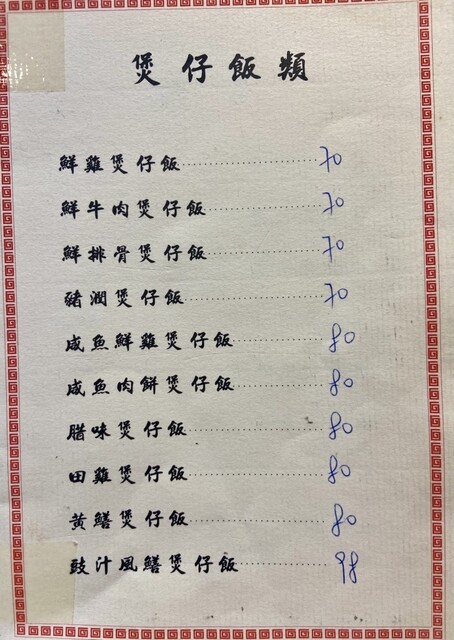 煲仔飯類
鮮雞煲仔飯……………………70
鮮牛肉煲仔飯…………………70
鮮排骨煲仔飯…………………70
豬潤煲仔飯……………………70
咸魚鮮雞煲仔飯………………80
咸魚肉餅煲仔飯………………80
腊味煲仔飯……………………80
田雞煲仔飯……………………80
黃鱔煲仔飯……………………80
豉汁風鱔煲仔飯………………98